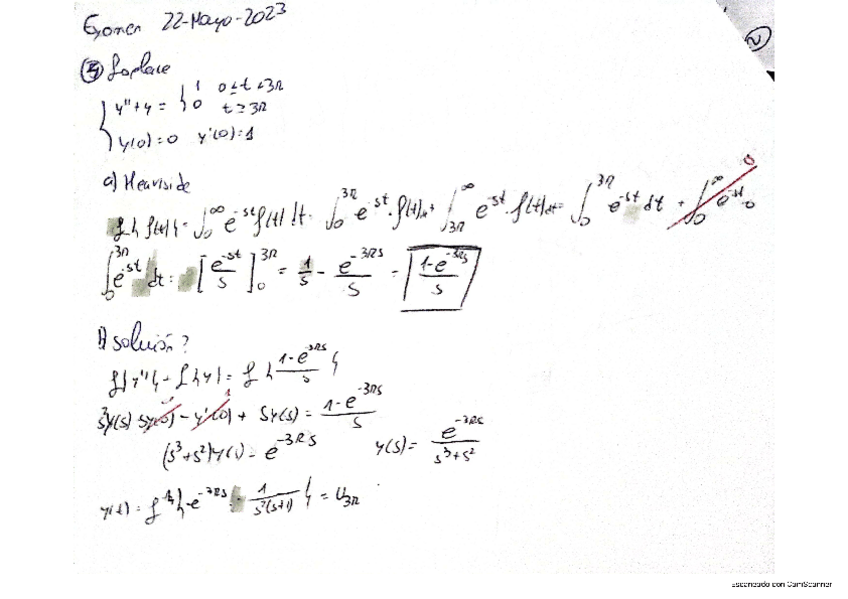 Examen 22-Mayo-2023
2
5 Laplace
y''+y = { 1 0≤t<3π
0 t≥3π
y(0)=0 y'(0)=1
a) Heaviside
L{f(t)} = ∫₀^∞ e^-st f(t) dt = ∫₀^3π e^-st · f(t)dt + ∫_3π^∞ e^-st · f(t)dt = ∫₀^3π e^-st dt + ∫₀^∞ e^-st · 0 0
∫₀^3π e^-st dt = [e^-st/s]₀^3π = 1/s - e^-3πs/s = 1-e^-3πs/s
solución?
L{y''} + L{y} = L{1-e^-3πs/s}
y(s) sy(0) - y'(0) + Sy(s) = 1-e^-3πs/s
(s³+s²)y(s) = e^-3πs y(s) = e^-3πs/s³+s²
y(t) = L^-1{-e^-3πs · 1/s²(s+1)} = U3π
Escaneado con CamScanner